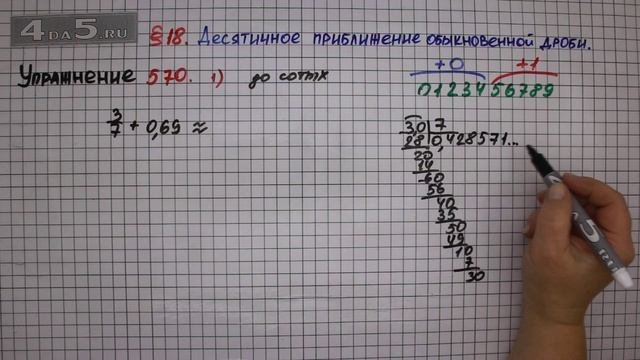 4DA5.RU
§18. Десятичное приближение обыкновенной дроби.
Упражнение 570. 1) до сотых
+0 +1
0123456789
3/7 + 0,69 ≈
3,0 | 7
28 | 0,428571...
20
14
60
56
40
35
50
49
10
7
30